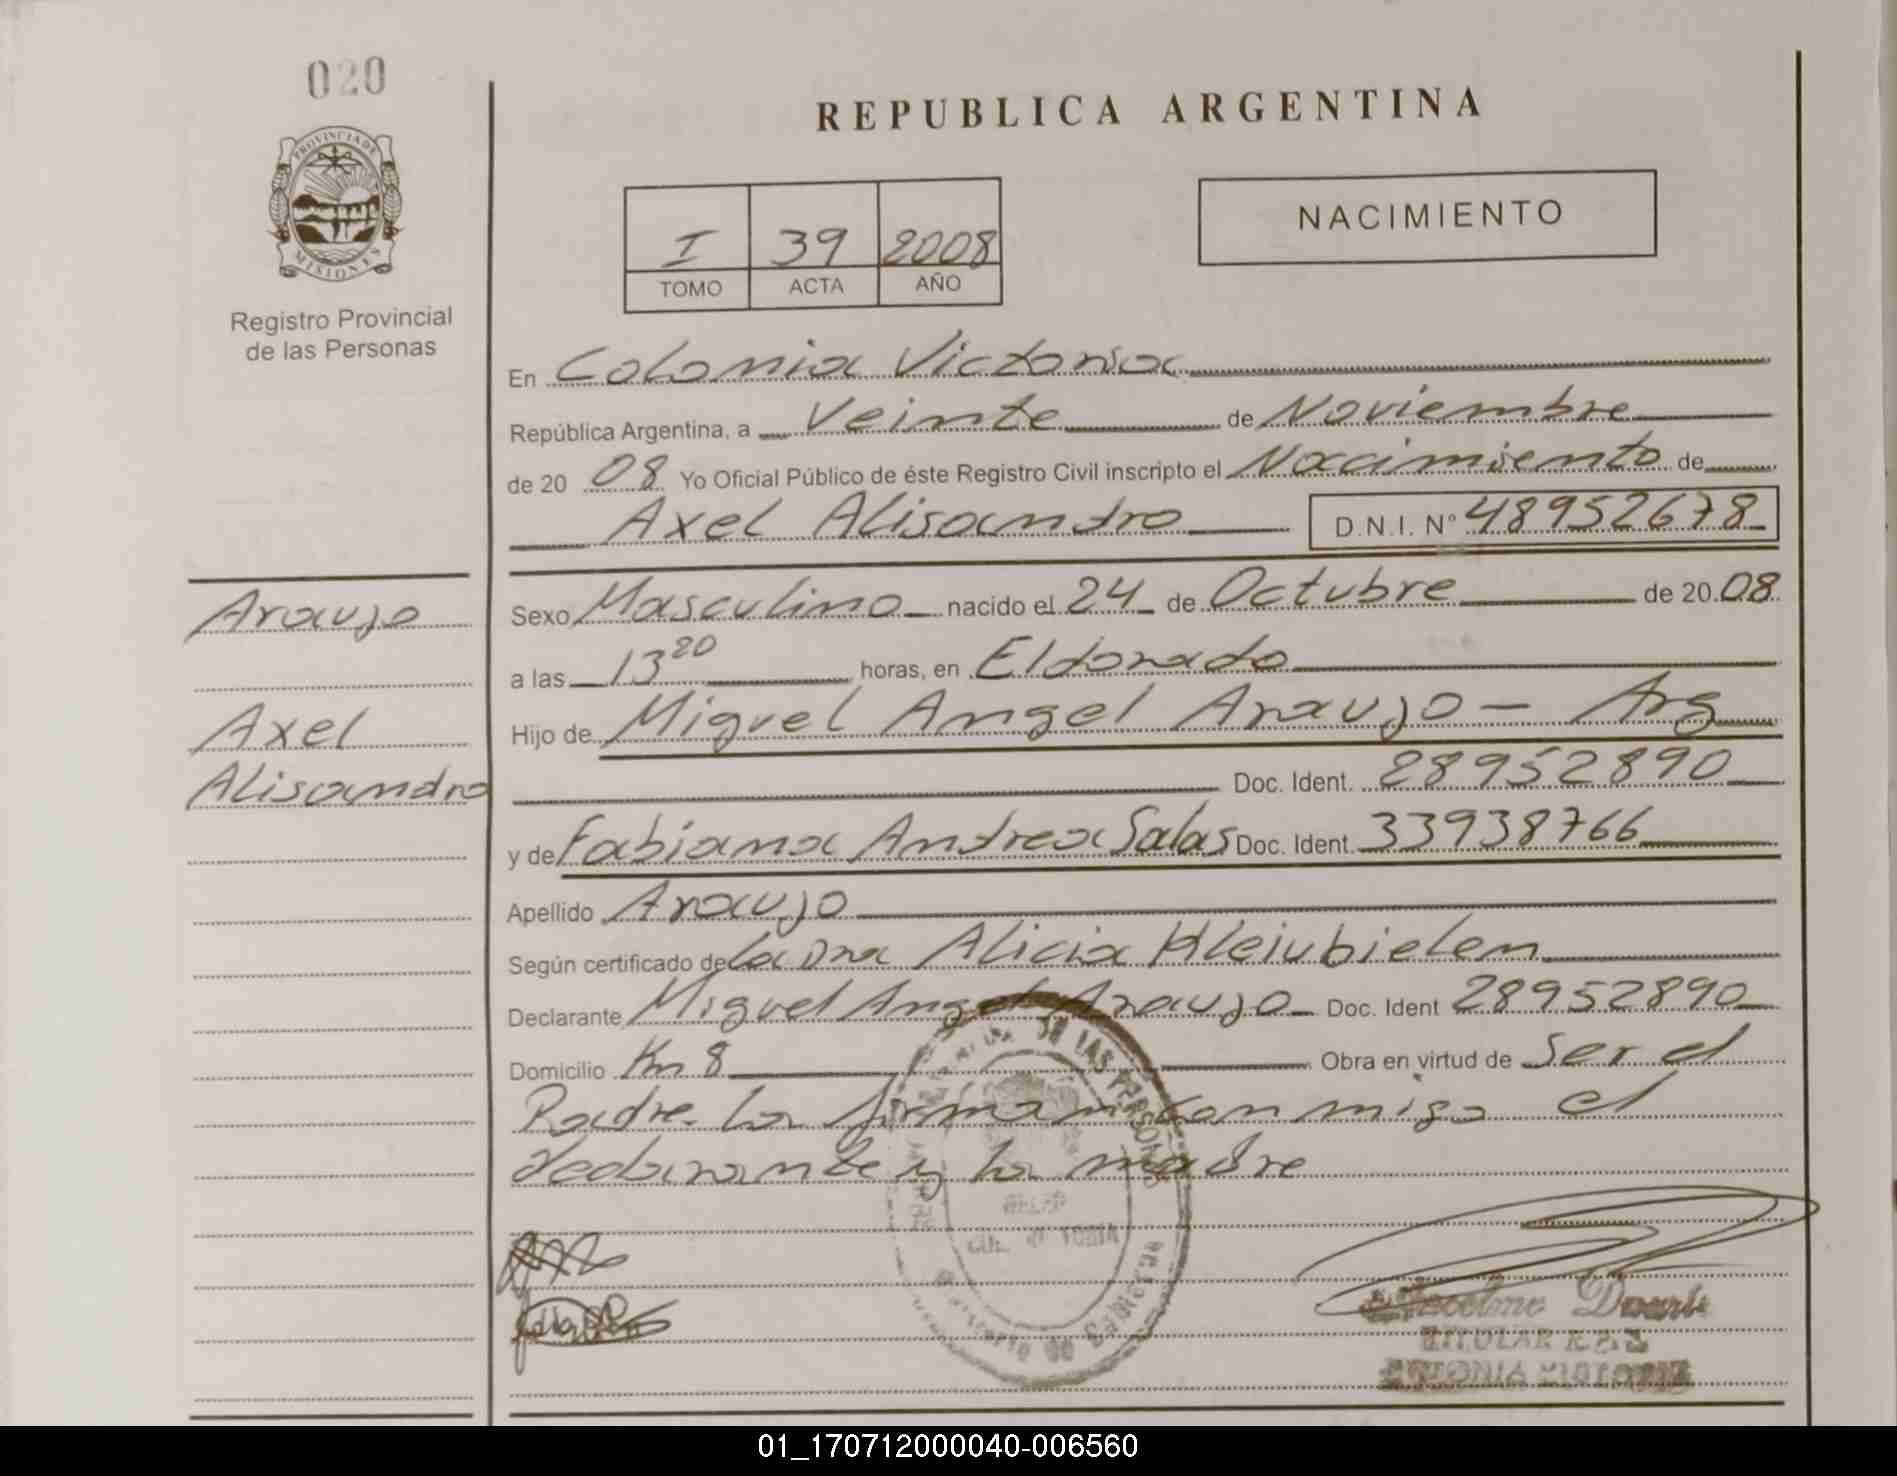 020
PROVINCIA DE
MISIONES
Registro Provincial
de las Personas
REPUBLICA ARGENTINA
I 39 2008
TOMO ACTA AÑO
NACIMIENTO
En Colonia Victoria
República Argentina, a Veinte de Noviembre
de 20 08 Yo Oficial Público de éste Registro Civil inscripto el Nacimiento de
Axel Alisandro D.N.I. N° 48952678
Araujo
Axel
Alisandro
Sexo Masculino nacido el 24 de Octubre de 20 08
a las 13 20 horas, en Eldorado
Hijo de Miguel Angel Araujo - Arg
Doc. Ident. 28952890
y de Fabiana Andrea Salas Doc. Ident. 33938766
Apellido Araujo
Según certificado de la Dra Alicia Kleiubielen
Declarante Miguel Angel Araujo Doc. Ident 28952890
Domicilio Km 8 Obra en virtud de Ser el
Padre. La firman conmigo el
declarante y la madre
DE LAS PERSONAS
TITULAR
COLONIA VICTORIA
01_170712000040-006560